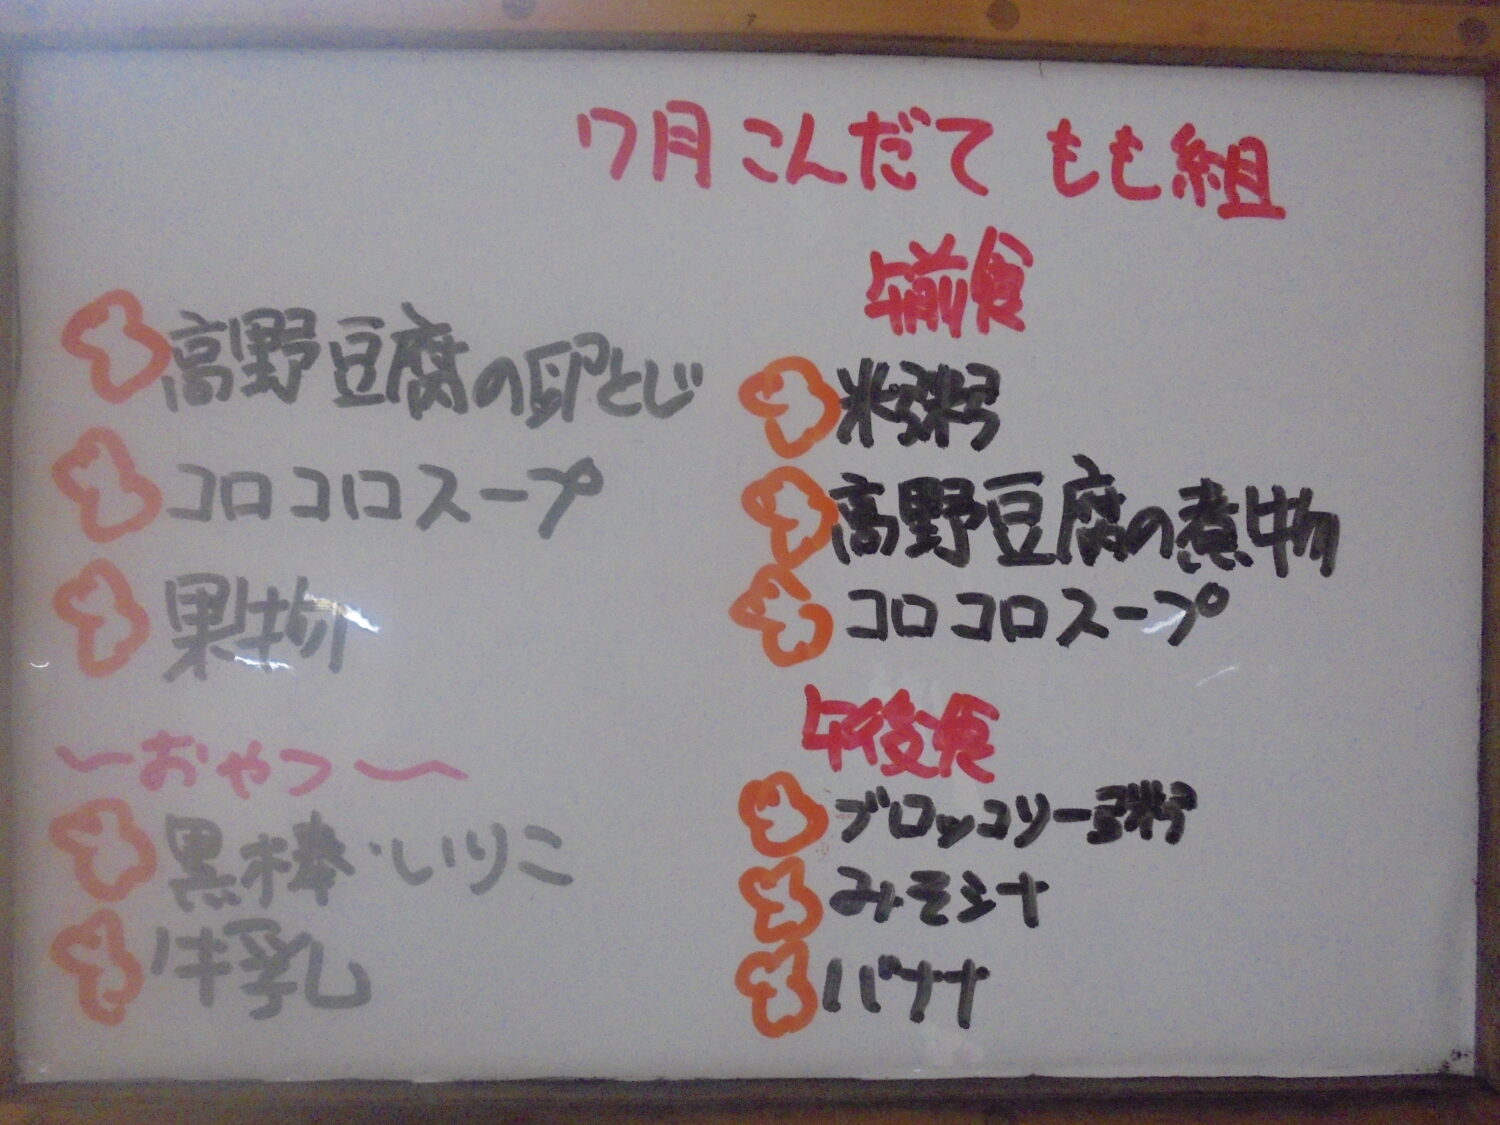 7月こんだて もも組
高野豆腐の卵とじ
コロコロスープ
果物
〜おやつ〜
黒棒・いりこ
牛乳
午前食
粥
高野豆腐の煮物
コロコロスープ
午後食
ブロッコリー粥
みそ汁
バナナ